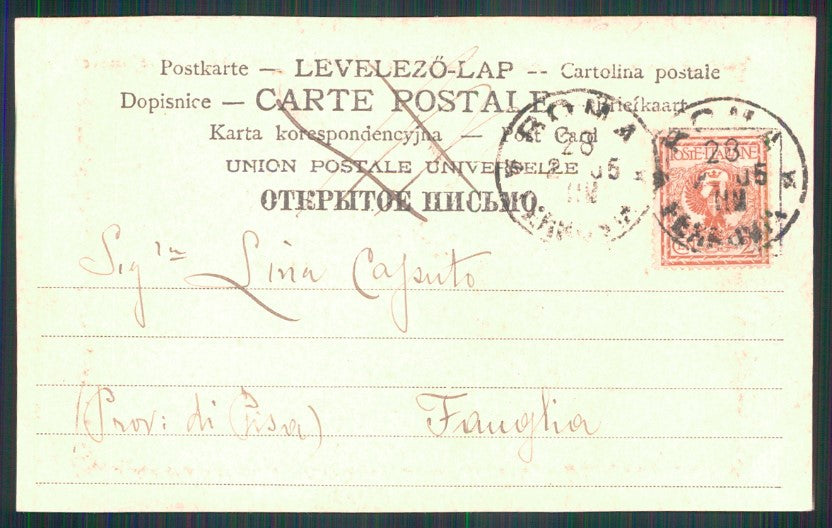 Postkarte — LEVELEZŐ-LAP -- Cartolina postale
Dopisnice — CARTE POSTALE — Briefkaart
Karta korespondencyjna — Post Card
UNION POSTALE UNIVERSELLE
ОТКРЫТОЕ ПИСЬМО.
ROMA
28
2 05
ROMA
28
05
FERROVIA
POSTE ITALIANE
Sig.na Lina Caputo
(Prov: di Pisa) Fauglia